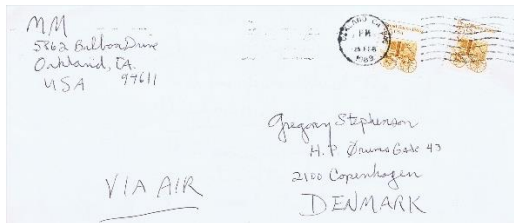 MM
5862 Balboa Drive
Oakland, CA.
USA 94611
PM
1989
Gregory Stephenson
H.P Ørums Gade 43
2100 Copenhagen
DENMARK
VIA AIR